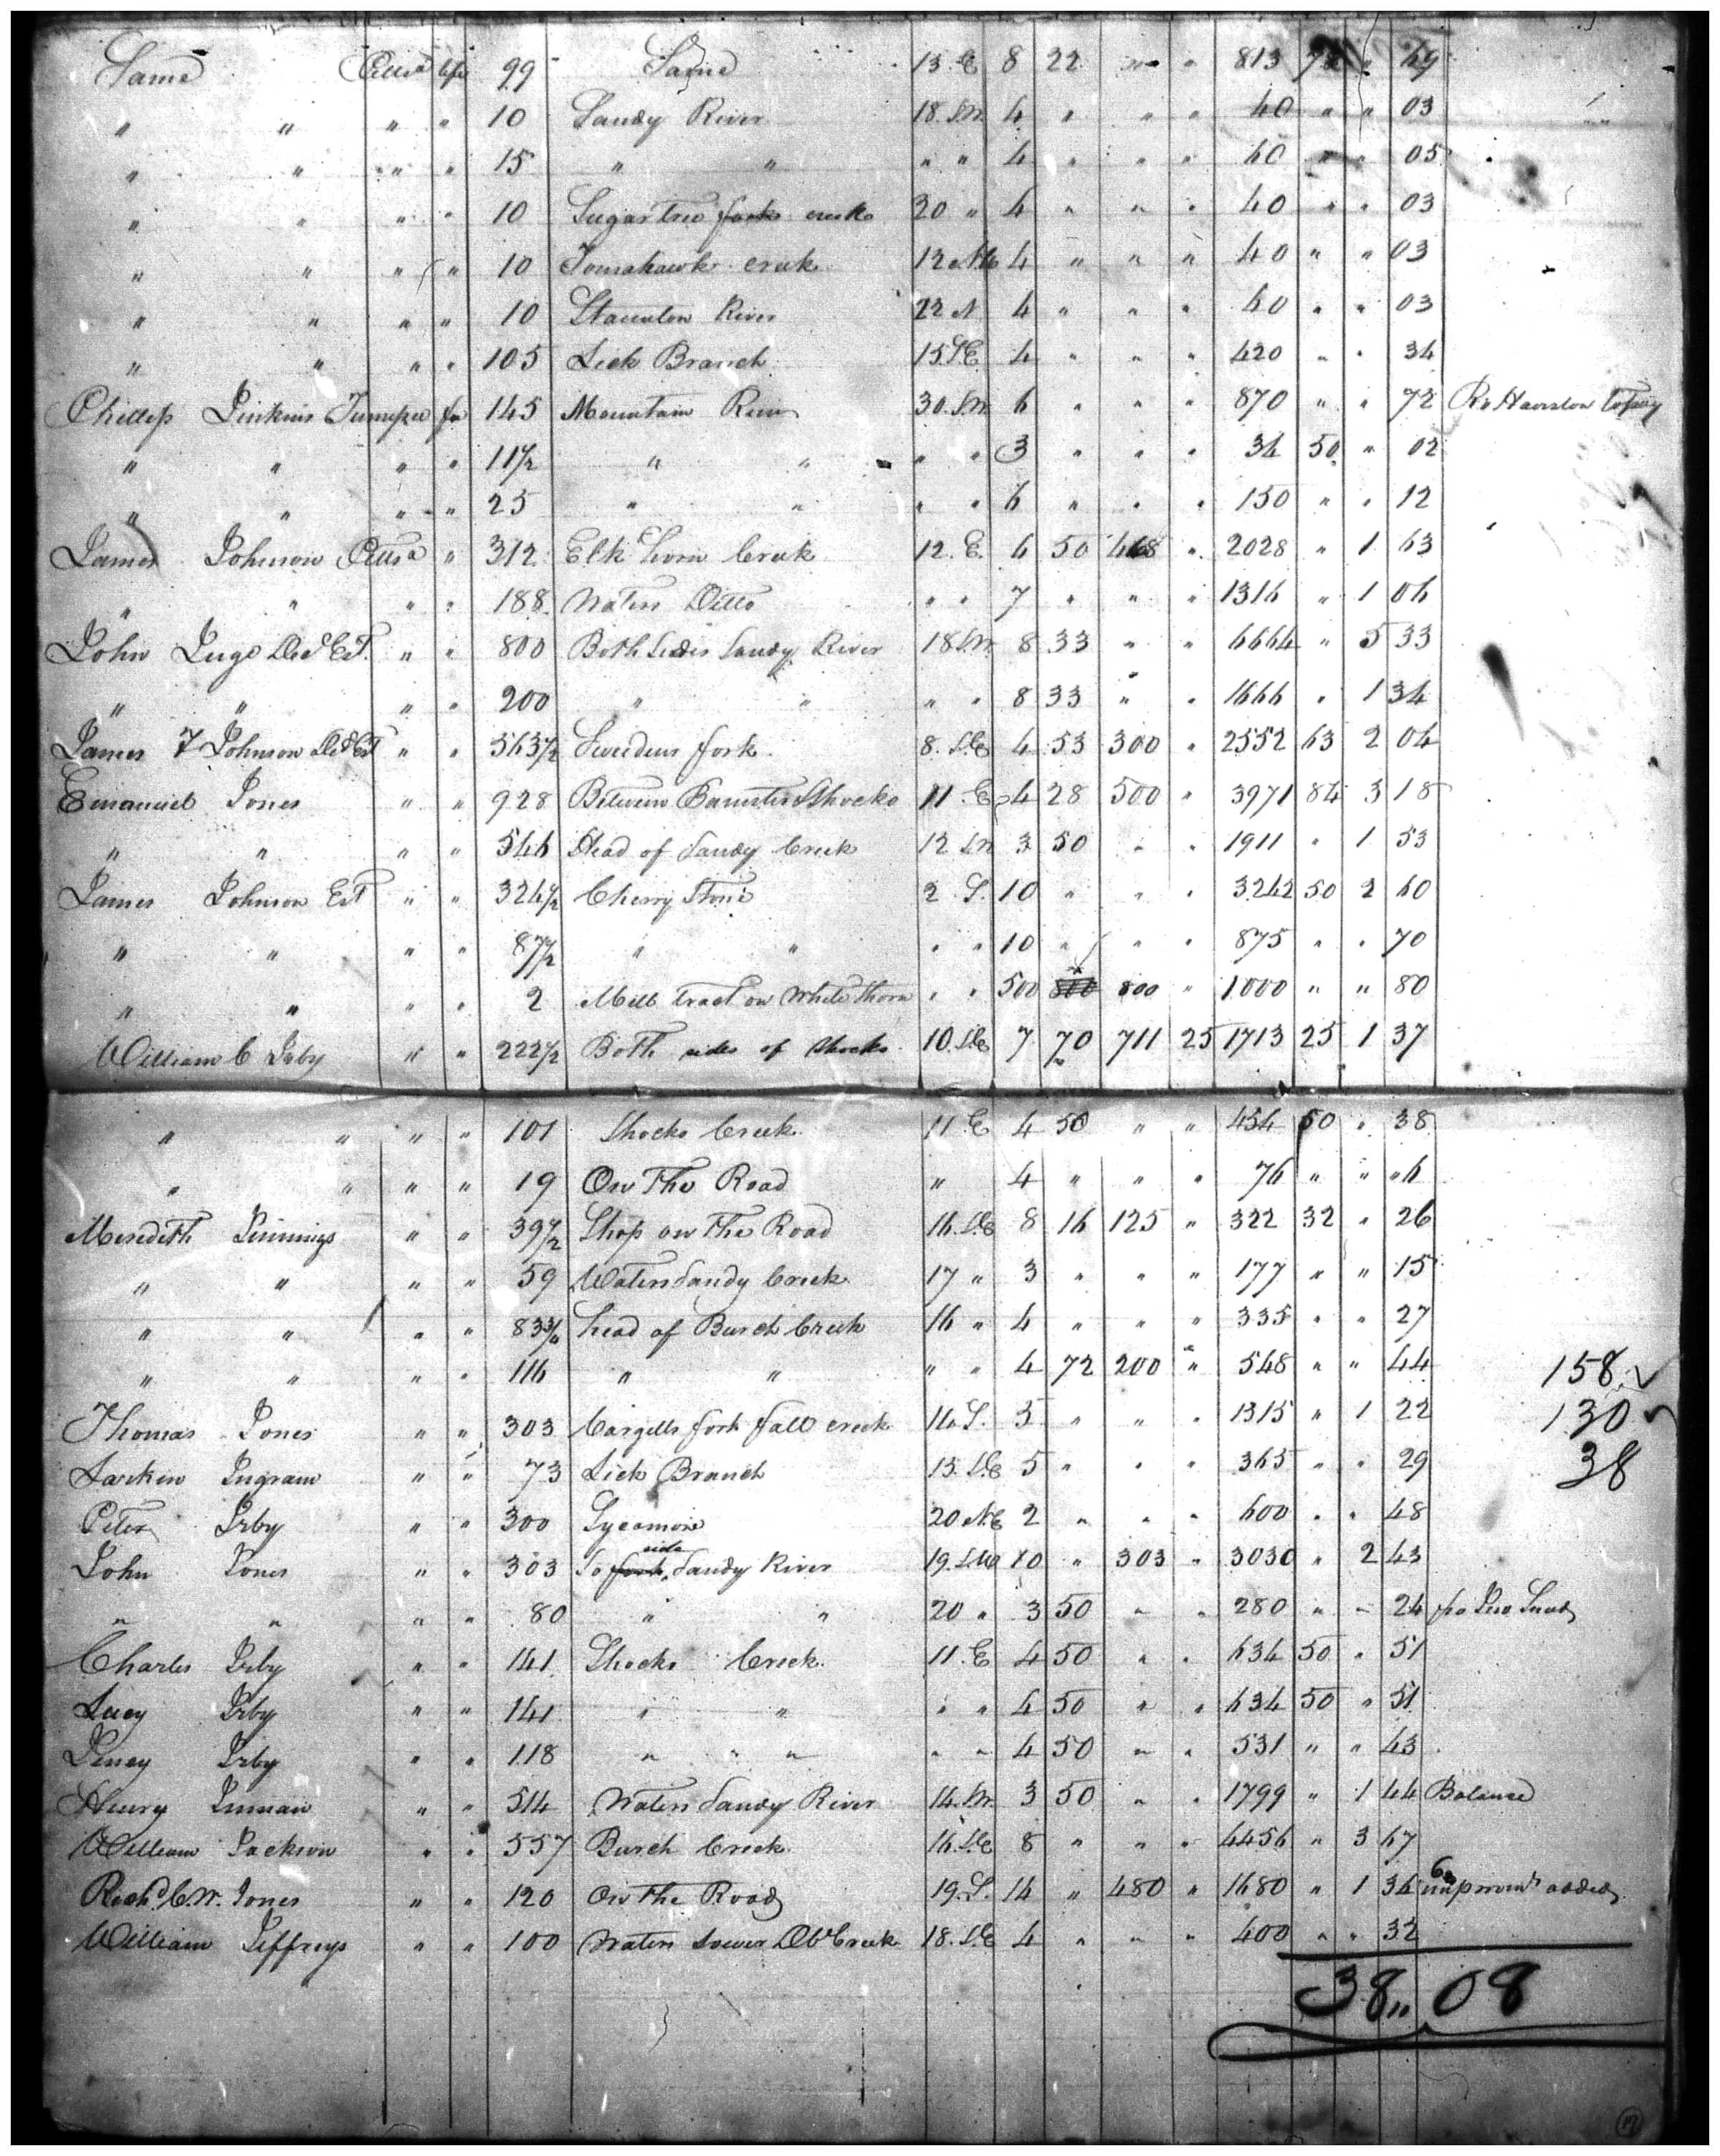 Same Pittsa life 99 Same 13 E 8 22 " " 813 " 69
" " " " 10 Sandy River 18 SW 4 " " " 40 " " 03
" " " " 15 " " " " 4 " " " 60 " " 05
" " " " 10 Sugar tree creeks 20 " 4 " " " 40 " " 03
" " " " 10 Tomahawk creek 12 NE 4 " " " 40 " " 03
" " " " 10 Staunton River 22 N 4 " " " 40 " " 03
" " " " 105 Lick Branch 15 SE 4 " " " 420 " " 34
Phillip Jenkins fee 145 Mountain Run 30 SW 6 " " " 870 " " 72 Ro Hairston to pay
" " " " 11 1/2 " " " " 3 " " " 34 50 " 02
" " " " 25 " " " " 6 " " " 150 " " 12
James Johnson Pittsa " 312 Elk horn Creek 12 E 6 50 468 " 2028 " 1 63
" " " " 188 Waters Ditto " " 7 " " " 1316 " 1 06
John Inge Decd Est. " " 800 Both Sides Sandy River 18 SW 8 33 " " 6664 " 5 33
" " " " 200 " " " " 8 33 " " 1666 " 1 34
James T Johnson Decd Est " " 563 1/2 Sweedens fork 8 SE 4 53 300 " 2552 63 2 04
Emanuel Jones " " 928 Between Banister & Shocko 11 E 4 28 500 " 3971 84 3 18
" " " " 546 Head of Sandy Creek 12 SW 3 50 " " 1911 " 1 53
James Johnson Est " " 324 1/2 Cherry Stone 2 S 10 " " " 3242 50 2 60
" " " " 87 1/2 " " " " 10 " " " 875 " " 70
" " " " 2 Mill tract on White thorn " " 500 800 " 1000 " " 80
William C Irby " " 222 1/2 Both sides of Shocko 10 SE 7 70 711 25 1713 25 1 37
" " " " 101 Shocko Creek 11 E 4 50 " " 454 50 " 38
" " " " 19 On The Road " 4 " " " 76 " " " 6
Meredith Jennings " " 39 1/2 Shop on The Road 16 SE 8 16 125 " 322 32 " 26
" " " " 59 Waters Sandy Creek 17 " 3 " " " 177 " " 15
" " " " 83 3/4 head of Burch Creek 16 " 4 " " " 335 " " 27
" " " " 116 " " " " 4 72 200 " 548 " " 44 158
Thomas Jones " " 303 Cargills fork fall creek 16 S. 5 " " " 1315 " 1 22 130
Larkin Ingram " " 73 Lick Branch 15 SE 5 " " " 365 " " 29 38
Peter Irby " " 300 Sycamore 20 NE 2 " " " 600 " " 48
John Jones " " 303 So fork side Sandy River 19 SW 10 " 303 " 3030 " 2 43
" " " " 80 " " 20 " 3 50 " " 280 " " 24
Charles Irby " " 141 Shocko Creek 11 E 4 50 " " 634 50 " 51
Lucy Irby " " 141 " " " " 4 50 " " 634 50 " 51
Irby " " 118 " " " " " 4 50 " " 531 " " 43
Henry Inman " " 514 Waters Sandy River 14 SW 3 50 " " 1799 " 1 44 Balance
William Jackson " " 557 Burch Creek 16 SE 8 " " " 4456 " 3 67
Richd C. W. Jones " " 120 On The Road 19 S. 14 " 480 " 1680 " 1 34 improvmts added
William Jeffreys " " 100 Waters Creek 18 SE 4 " " " 400 " " 32
38 " 08